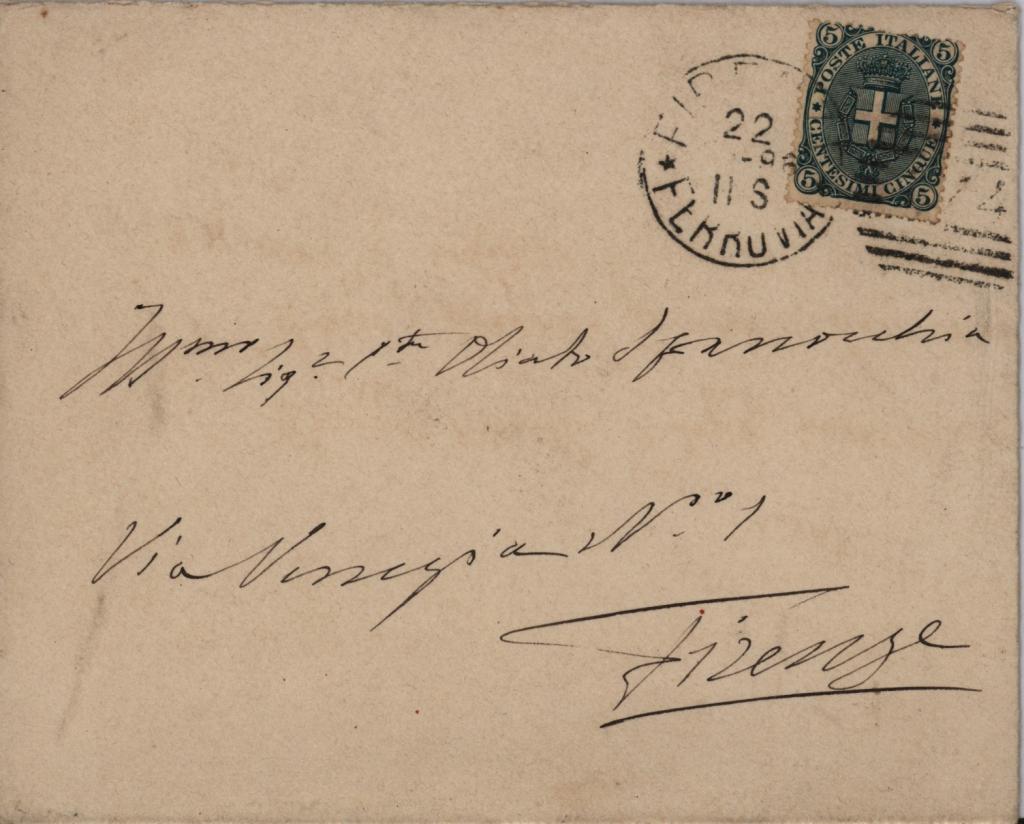 5 POSTE ITALIANE 5
5 CENTESIMI CINQUE 5
FIRENZE
22
11 S
FERROVIA
Illmo. Sigr Cte Spannocchia
Via Venezia No. 1
Firenze